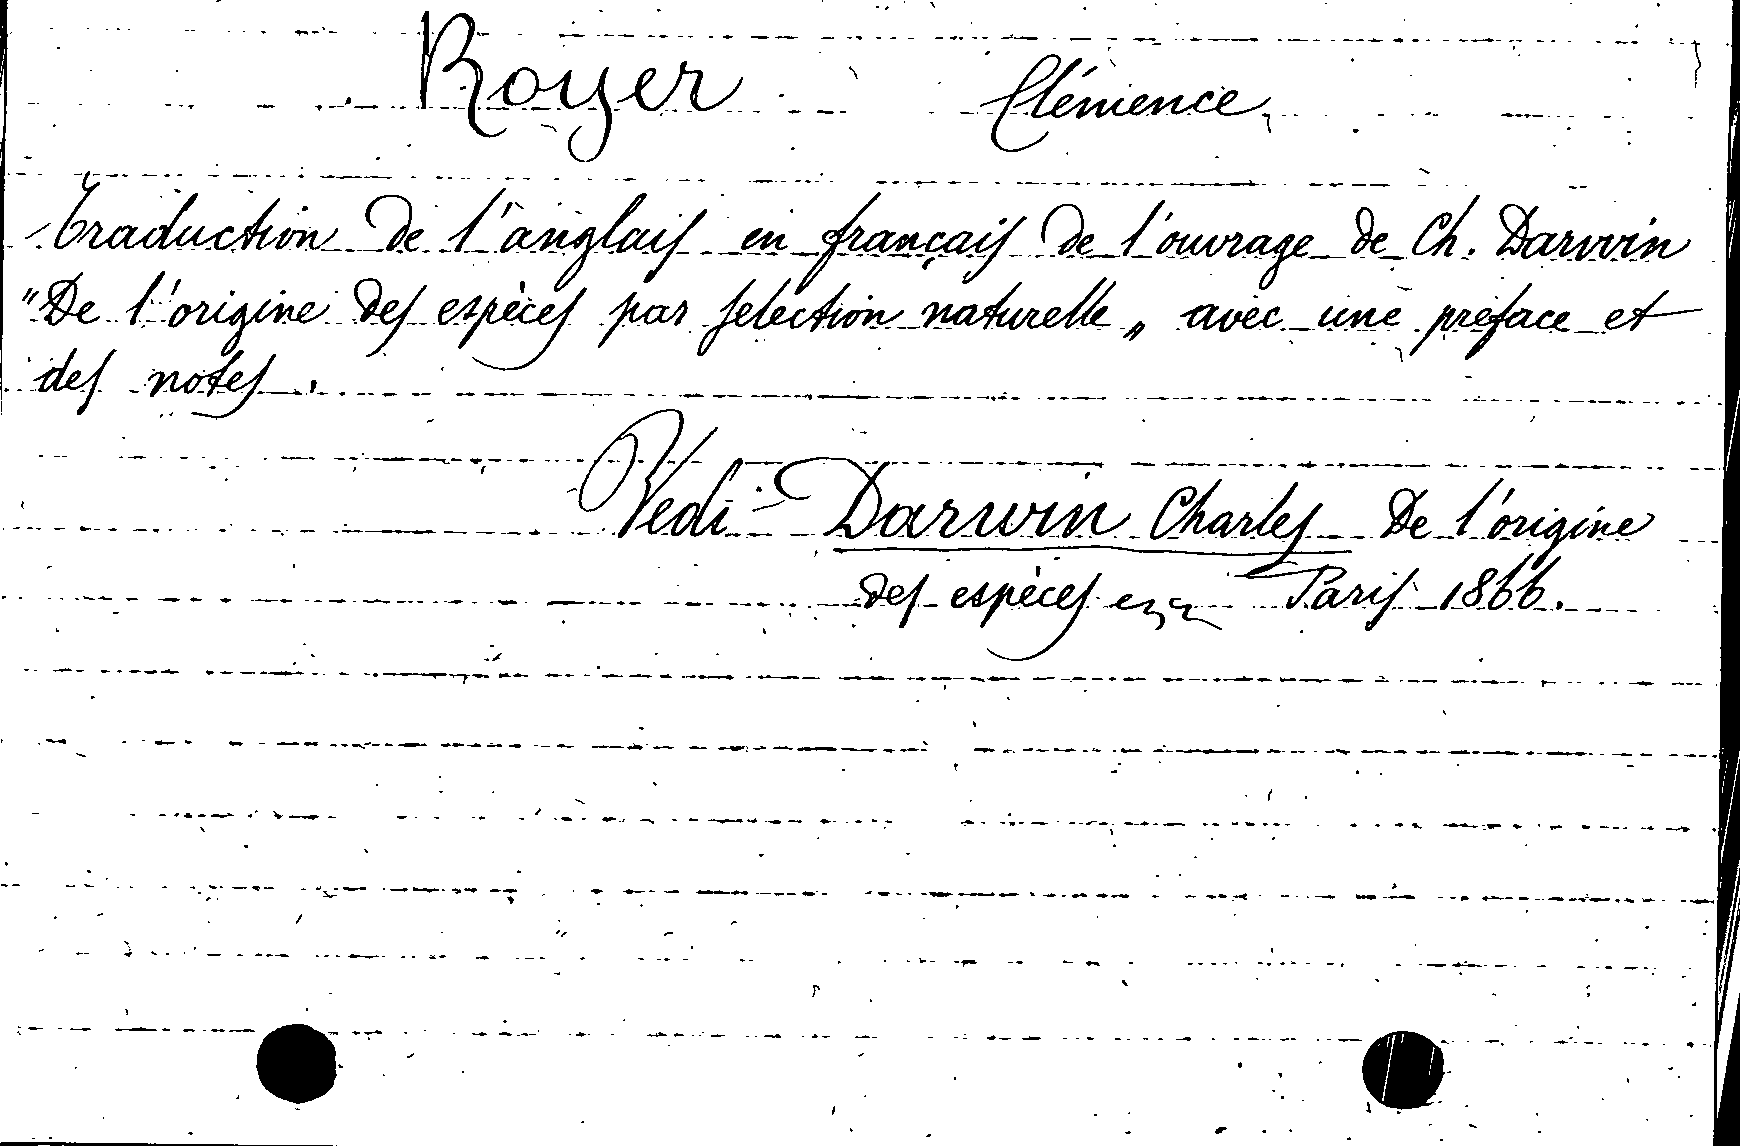 Royer Clémence,
Traduction de l'anglais en français de l'ouvrage de Ch. Darwin
"De l'origine des espèces par sélection naturelle„ avec une préface et
des notes.
Vedi Darwin Charles De l'origine
des espèces ecc Paris 1866.